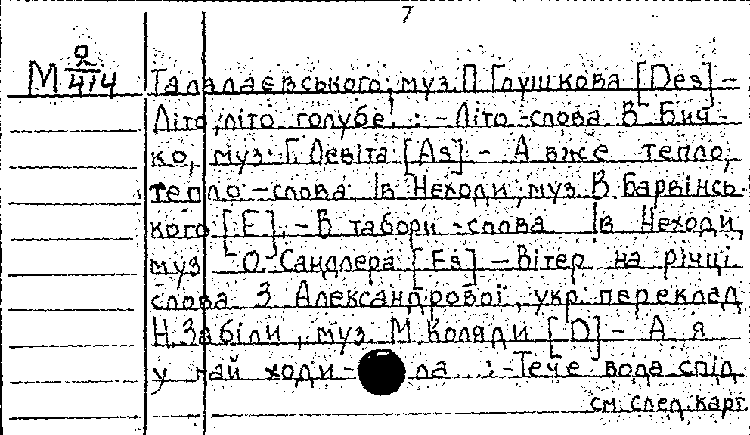 7
М 2/414
Талалаєвського, муз. П. Глушкова [Des] -
Літо, літо голубе! : - Літо - слова В. Бич-
ко, муз. Г. Левіта [As] - А вже тепло,
тепло - слова Ів. Неходи, муз. В. Барвінсь-
кого [E]. - В табори - слова Ів. Неходи,
муз О. Сандлера [Es] - Вітер на річці
слова З. Александрової, укр. переклад
Н. Забіли, муз. М. Коляди [D] - А я
у гай ходи- ла : - Тече вода спід
см. след. карт.